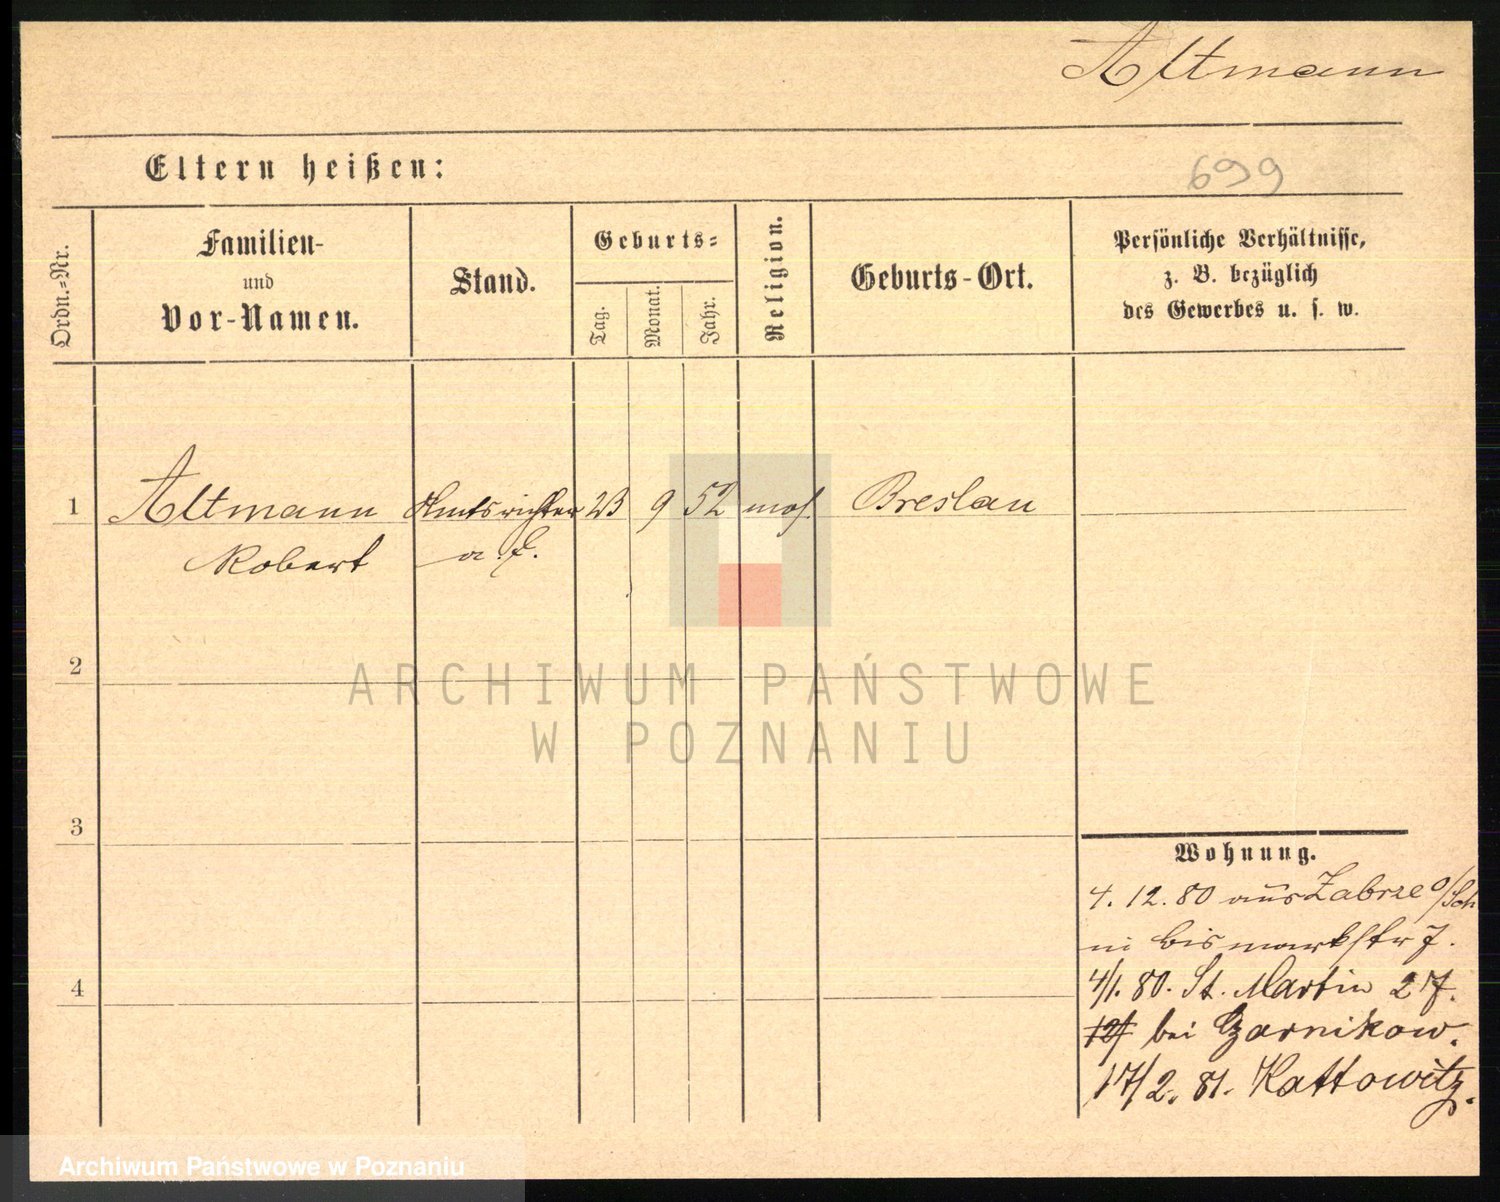 Altmann
Eltern heißen:
699
Ordn.-Nr.
Familien-
und
Vor-Namen.
Stand.
Geburts-
Tag.
Monat.
Jahr.
Religion.
Geburts-Ort.
Persönliche Verhältnisse,
z. B. bezüglich
des Gewerbes u. s. w.
1 Altmann Amtsrichter 23 9 52 mos. Breslau
Robert a. D.
2
ARCHIWUM PAŃSTWOWE
W POZNANIU
3
Wohnung.
4. 12. 80 aus Zabrze O/Sch
Bismarkstr 7.
4
4/1. 80. St. Martin 27.
bei Czarnikow.
17/2. 81. Kattowitz.
Archiwum Państwowe w Poznaniu